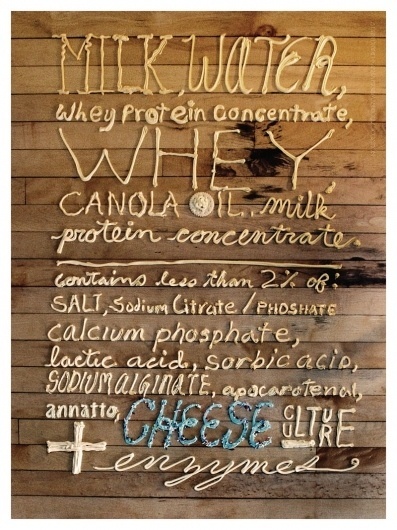 MILK, WATER,
Whey Protein Concentrate,
WHEY,
CANOLA OIL, milk
protein concentrate.
contains less than 2% of:
SALT, Sodium Citrate / PHOSHATE
calcium phosphate,
lactic acid, sorbic acid,
SODIUM ALGINATE, apocarotenal,
annatto, CHEESE CULTURE
+ enzymes